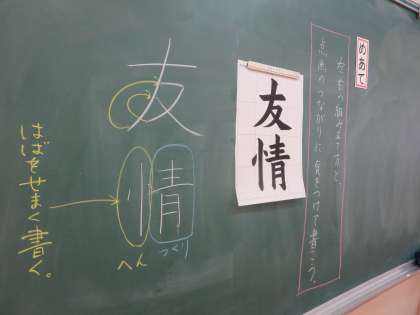 めあて
左右の組み立て方と、
点画のつながりに気をつけて書こう。
友情
友情
へん
つくり
はばをせまく書く。